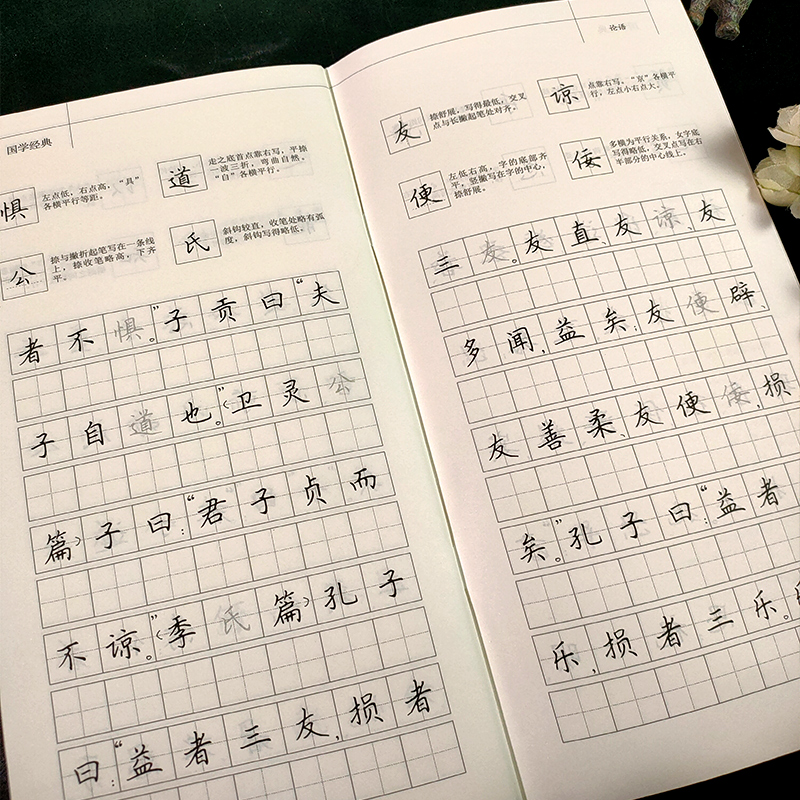 国学经典
惧
左点低，右点高，“具”
各横平行等距。
道
走之底首点靠右写，平捺
一波三折，弯曲自然，
“自”各横平行。
公
捺与撇折起笔写在一条线
上，捺收笔略高，下齐
平。
氏
斜钩较直，收笔处略有弧
度，斜钩写得略低。
者不惧。”子贡曰：“夫
子自道也。”《卫灵公
篇》子曰：“君子贞而
不谅。”《季氏篇》孔子
曰：“益者三友，损者
论语
友
捺舒展，写得最低，交叉
点与长撇起笔处对齐。
谅
点靠右写。“京”各横平
行，左点小右点大。
便
左低右高，字的底部齐
平，竖撇写在字的中心，
捺舒展。
佞
多横为平行关系，女字底
写得略低，交叉点写在右
半部分的中心线上。
三友。友直、友谅、友
多闻，益矣；友便辟、
友善柔、友便佞，损
矣。”孔子曰：“益者
乐，损者三乐。